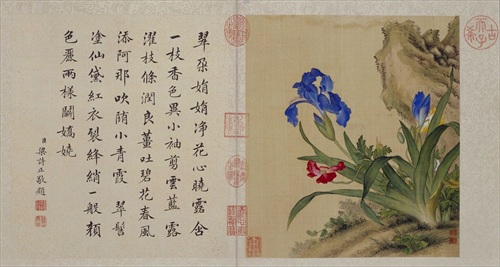 翠朶娟娟净花心曉露含
一枝香色異小袖剪雲藍 露
濯枝條潤良薑吐碧花春風
添阿那吹隨小青霞 翠髻
塗仙黛紅衣裂絳綃一般顏
色麗兩樣鬬嬌嬈
臣梁詩正敬題
古稀天子